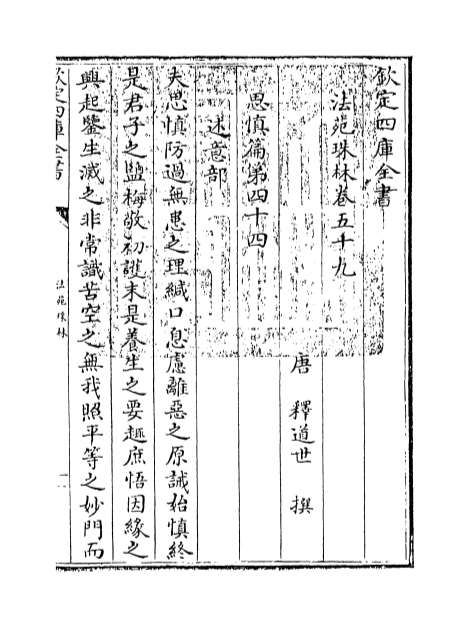 欽定四庫全書
法苑珠林卷五十九
唐 釋道世 撰
思慎篇第四十四
述意部
夫思慎防過無患之理緘口息慮離惡之原誡始慎終
是君子之鹽梅敬初護末是養生之要趣庶悟因緣之
興起鑒生滅之非常識苦空之無我照平等之妙門而
欽定四庫全書
法苑珠林
一